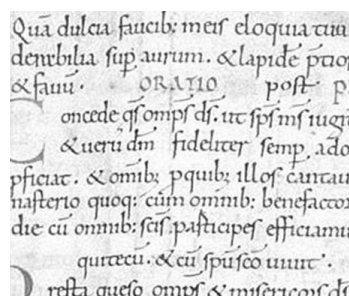 Quā dulcia faucib; meis eloquia tua
derabilia sup̄ aurum. & lapidē p̄tio
& fauū. ORATIO post p
C oncede q̄s om̄ps d̄s. ut sp̄s n̄s iugi
& uerū d̄m fideliter semp̄ ado
pficiat. & om̄ib; p quib; illos cantau
nasterio quoq; cūm om̄ib; benefactor
die cū om̄ib; sc̄is. participes efficiamu
qui tecū. & cū sp̄u sc̄o uiuit.
resta queso om̄ps & misericors d̄s